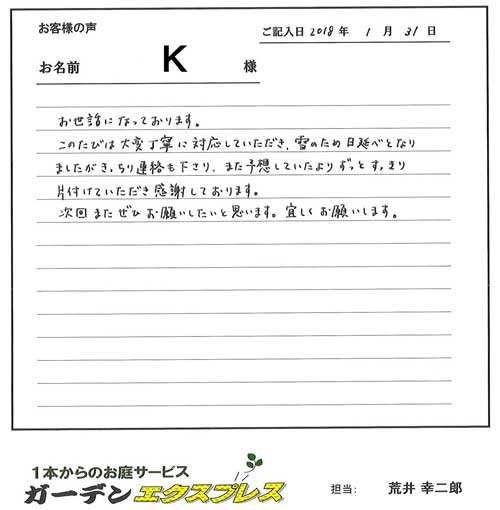 お客様の声
ご記入日 2018 年 1 月 31 日
お名前 K 様
お世話になっております。
このたびは大変丁寧に対応していただき、雪のため日延べとなり
ましたがきっちり連絡も下さり、また予想していたよりずっとすっきり
片付けていただき感謝しております。
次回またぜひお願いしたいと思います。宜しくお願いします。
1本からのお庭サービス
ガーデンエクスプレス
担当: 荒井 幸二郎